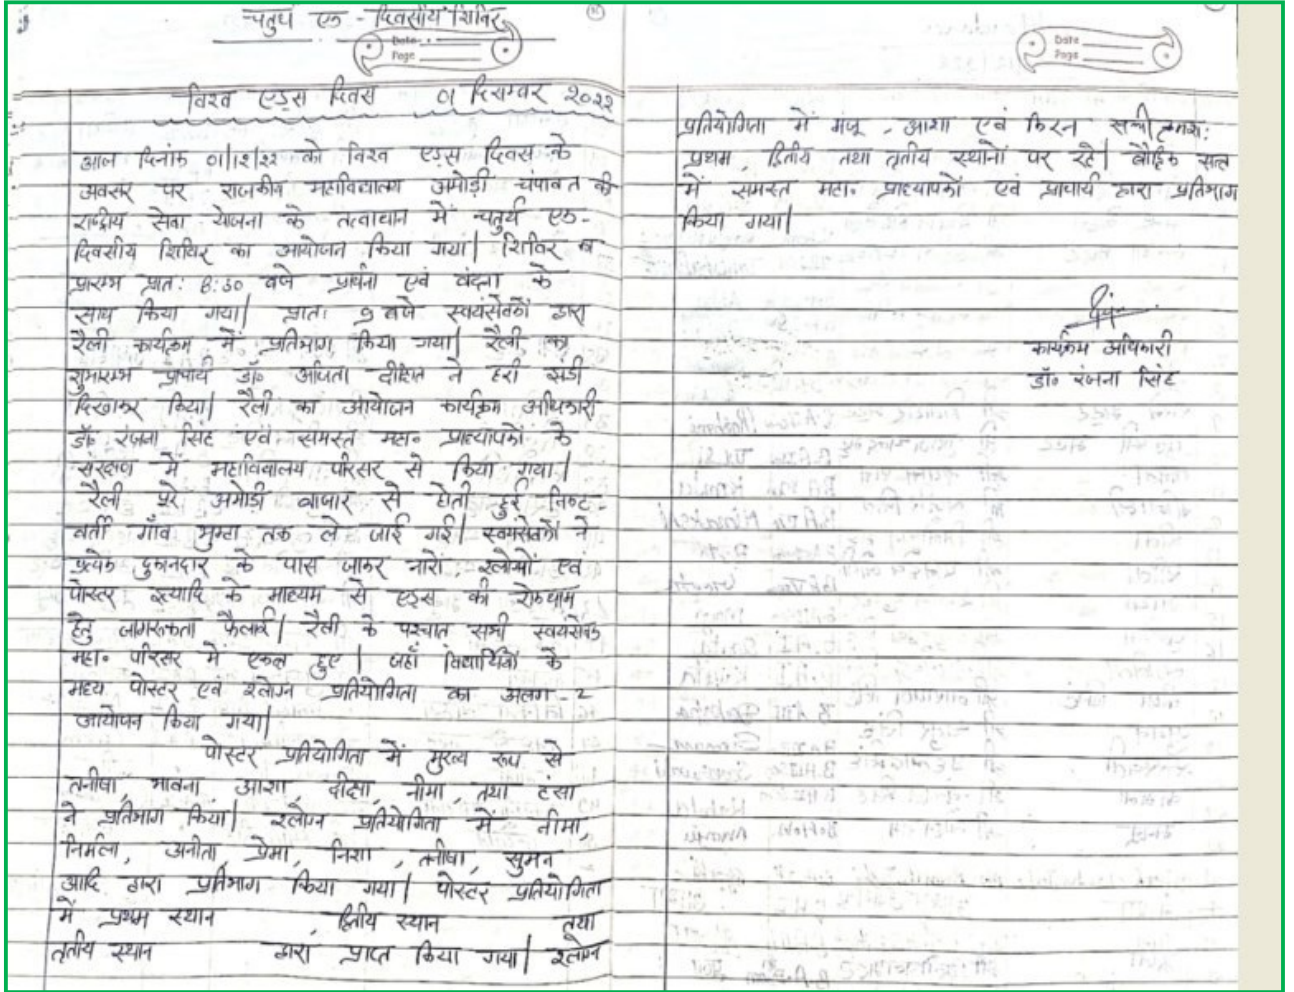 चतुर्थ एक - दिवसीय शिविर
Date
Page
विश्व एड्स दिवस 01 दिसम्बर २०२२
आज दिनांक 01/12/22 को विश्व एड्स दिवस के
अवसर पर राजकीय महाविद्यालय अमोड़ी चंपावत की
राष्ट्रीय सेवा योजना के तत्वाधान में चतुर्थ एक-
दिवसीय शिविर का आयोजन किया गया। शिविर का
प्रारम्भ प्रात: 8:30 बजे प्रार्थना एवं वंदना के
साथ किया गया। प्रातः 9 बजे स्वयंसेवकों द्वारा
रैली कार्यक्रम में प्रतिभाग किया गया। रैली का
शुभारम्भ प्राचार्य डॉ० अजिता दीक्षित ने हरी झंडी
दिखाकर किया। रैली का आयोजन कार्यक्रम अधिकारी
डॉ० रंजना सिंह एवं समस्त महा० प्राध्यापकों के
संरक्षण में महाविद्यालय परिसर से किया गया।
रैली पूरे अमोड़ी बाजार से होती हुई निकट-
वर्ती गाँव तक ले जाई गई। स्वयंसेवकों ने
प्रत्येक दुकानदार के पास जाकर नारों, स्लोगनों एवं
पोस्टर इत्यादि के माध्यम से एड्स की रोकथाम
हेतु जागरूकता फैलाई। रैली के पश्चात सभी स्वयंसेवक
महा० परिसर में एकत्र हुए। जहाँ विद्यार्थियों के
मध्य पोस्टर एवं स्लोगन प्रतियोगिता का अलग-2
आयोजन किया गया।
पोस्टर प्रतियोगिता में मुख्य रूप से
तनीषा, भावना आशा, दीक्षा, नीमा, तथा हंसा
ने प्रतिभाग किया। स्लोगन प्रतियोगिता में नीमा,
निर्मला, अनीता, प्रेमा, निशा, तनीषा, सुमन
आदि द्वारा प्रतिभाग किया गया। पोस्टर प्रतियोगिता
में प्रथम स्थान , द्वितीय स्थान तथा
तृतीय स्थान द्वारा प्राप्त किया गया। स्लोगन
Date
Page
प्रतियोगिता में मंजू, आशा एवं किरन क्रमश:
प्रथम, द्वितीय तथा तृतीय स्थानों पर रहे। बौद्धिक सत्र
में समस्त महा० प्राध्यापकों एवं प्राचार्य द्वारा प्रतिभाग
किया गया।
कार्यक्रम अधिकारी
डॉ० रंजना सिंह